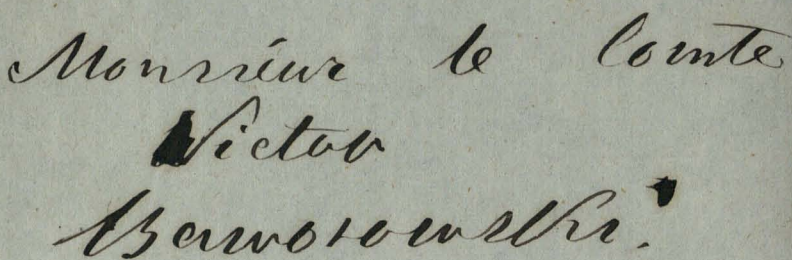 Monsieur le Comte
Victor
Baworowski.